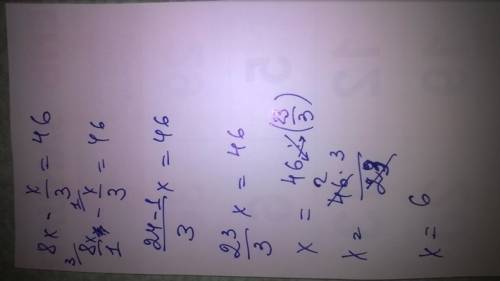 8x - x/3 = 46
3 8x/1 - 1 x/3 = 46
24-1/3 x = 46
23/3 x = 46
x = 46 : (23/3)
x = 2 46 · 3 / 23
x = 6